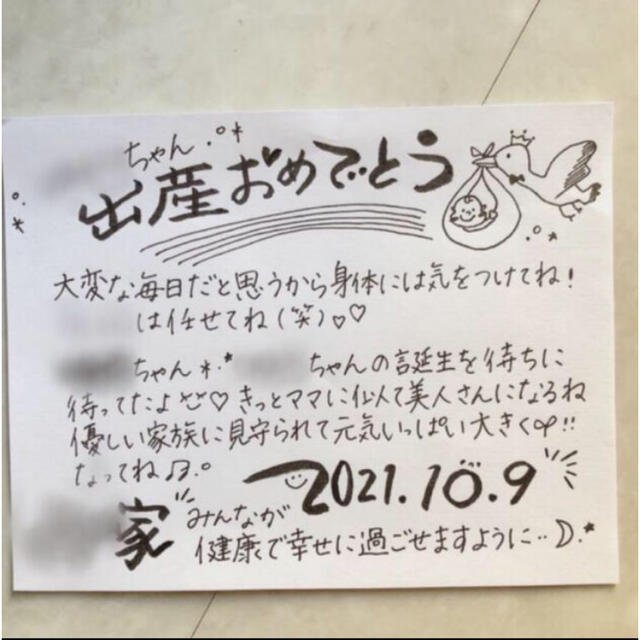 ちゃん
出産おめでとう
大変な毎日だと思うから身体には気をつけてね!
は任せてね(笑)♡♡
ちゃん ちゃんの誕生を待ちに
待ってたよ♡きっとママに似て美人さんになるね
優しい家族に見守られて元気いっぱい大きく!!
なってね♫
2021.10.9
家
みんなが
健康で幸せに過ごせますように··